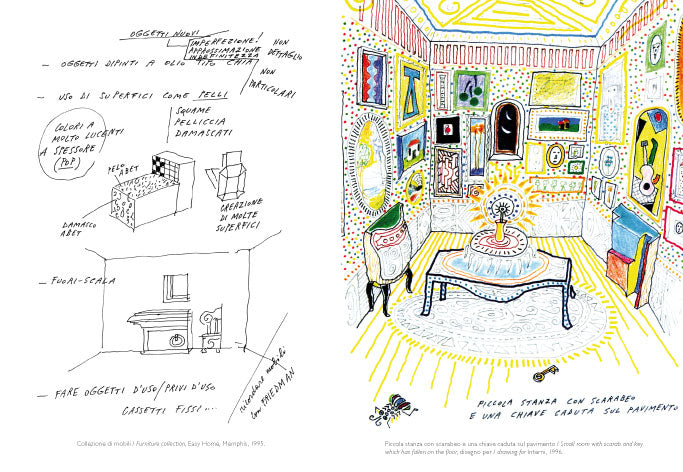 OGGETTI NUOVI
IMPERFEZIONE!
APPROSSIMAZIONE
INDEFINITEZZA
NON
DETTAGLIO
— OGGETTI DIPINTI A OLIO TIPO CHIA
NON
PARTICOLARI
— USO DI SUPERFICI COME PELLI
SQUAME
PELLICCIA
DAMASCATI
COLORI A
MOLTO LUCENTI
A SPESSORE
(POP)
PELO
ABET
DAMASCO
ABET
CREAZIONE
DI MOLTE
SUPERFICI
— FUORI-SCALA
— FARE OGGETTI D'USO/PRIVI D'USO
CASSETTI FISSI...
ricordare mobili
con FRIEDMAN
Collezione di mobili / Furniture collection, Easy Home, Memphis, 1995.
PICCOLA STANZA CON SCARABEO
E UNA CHIAVE CADUTA SUL PAVIMENTO
Piccola stanza con scarabeo e una chiave caduta sul pavimento / Small room with scarab and key
which has fallen on the floor, disegno per / drawing for Interni, 1996.